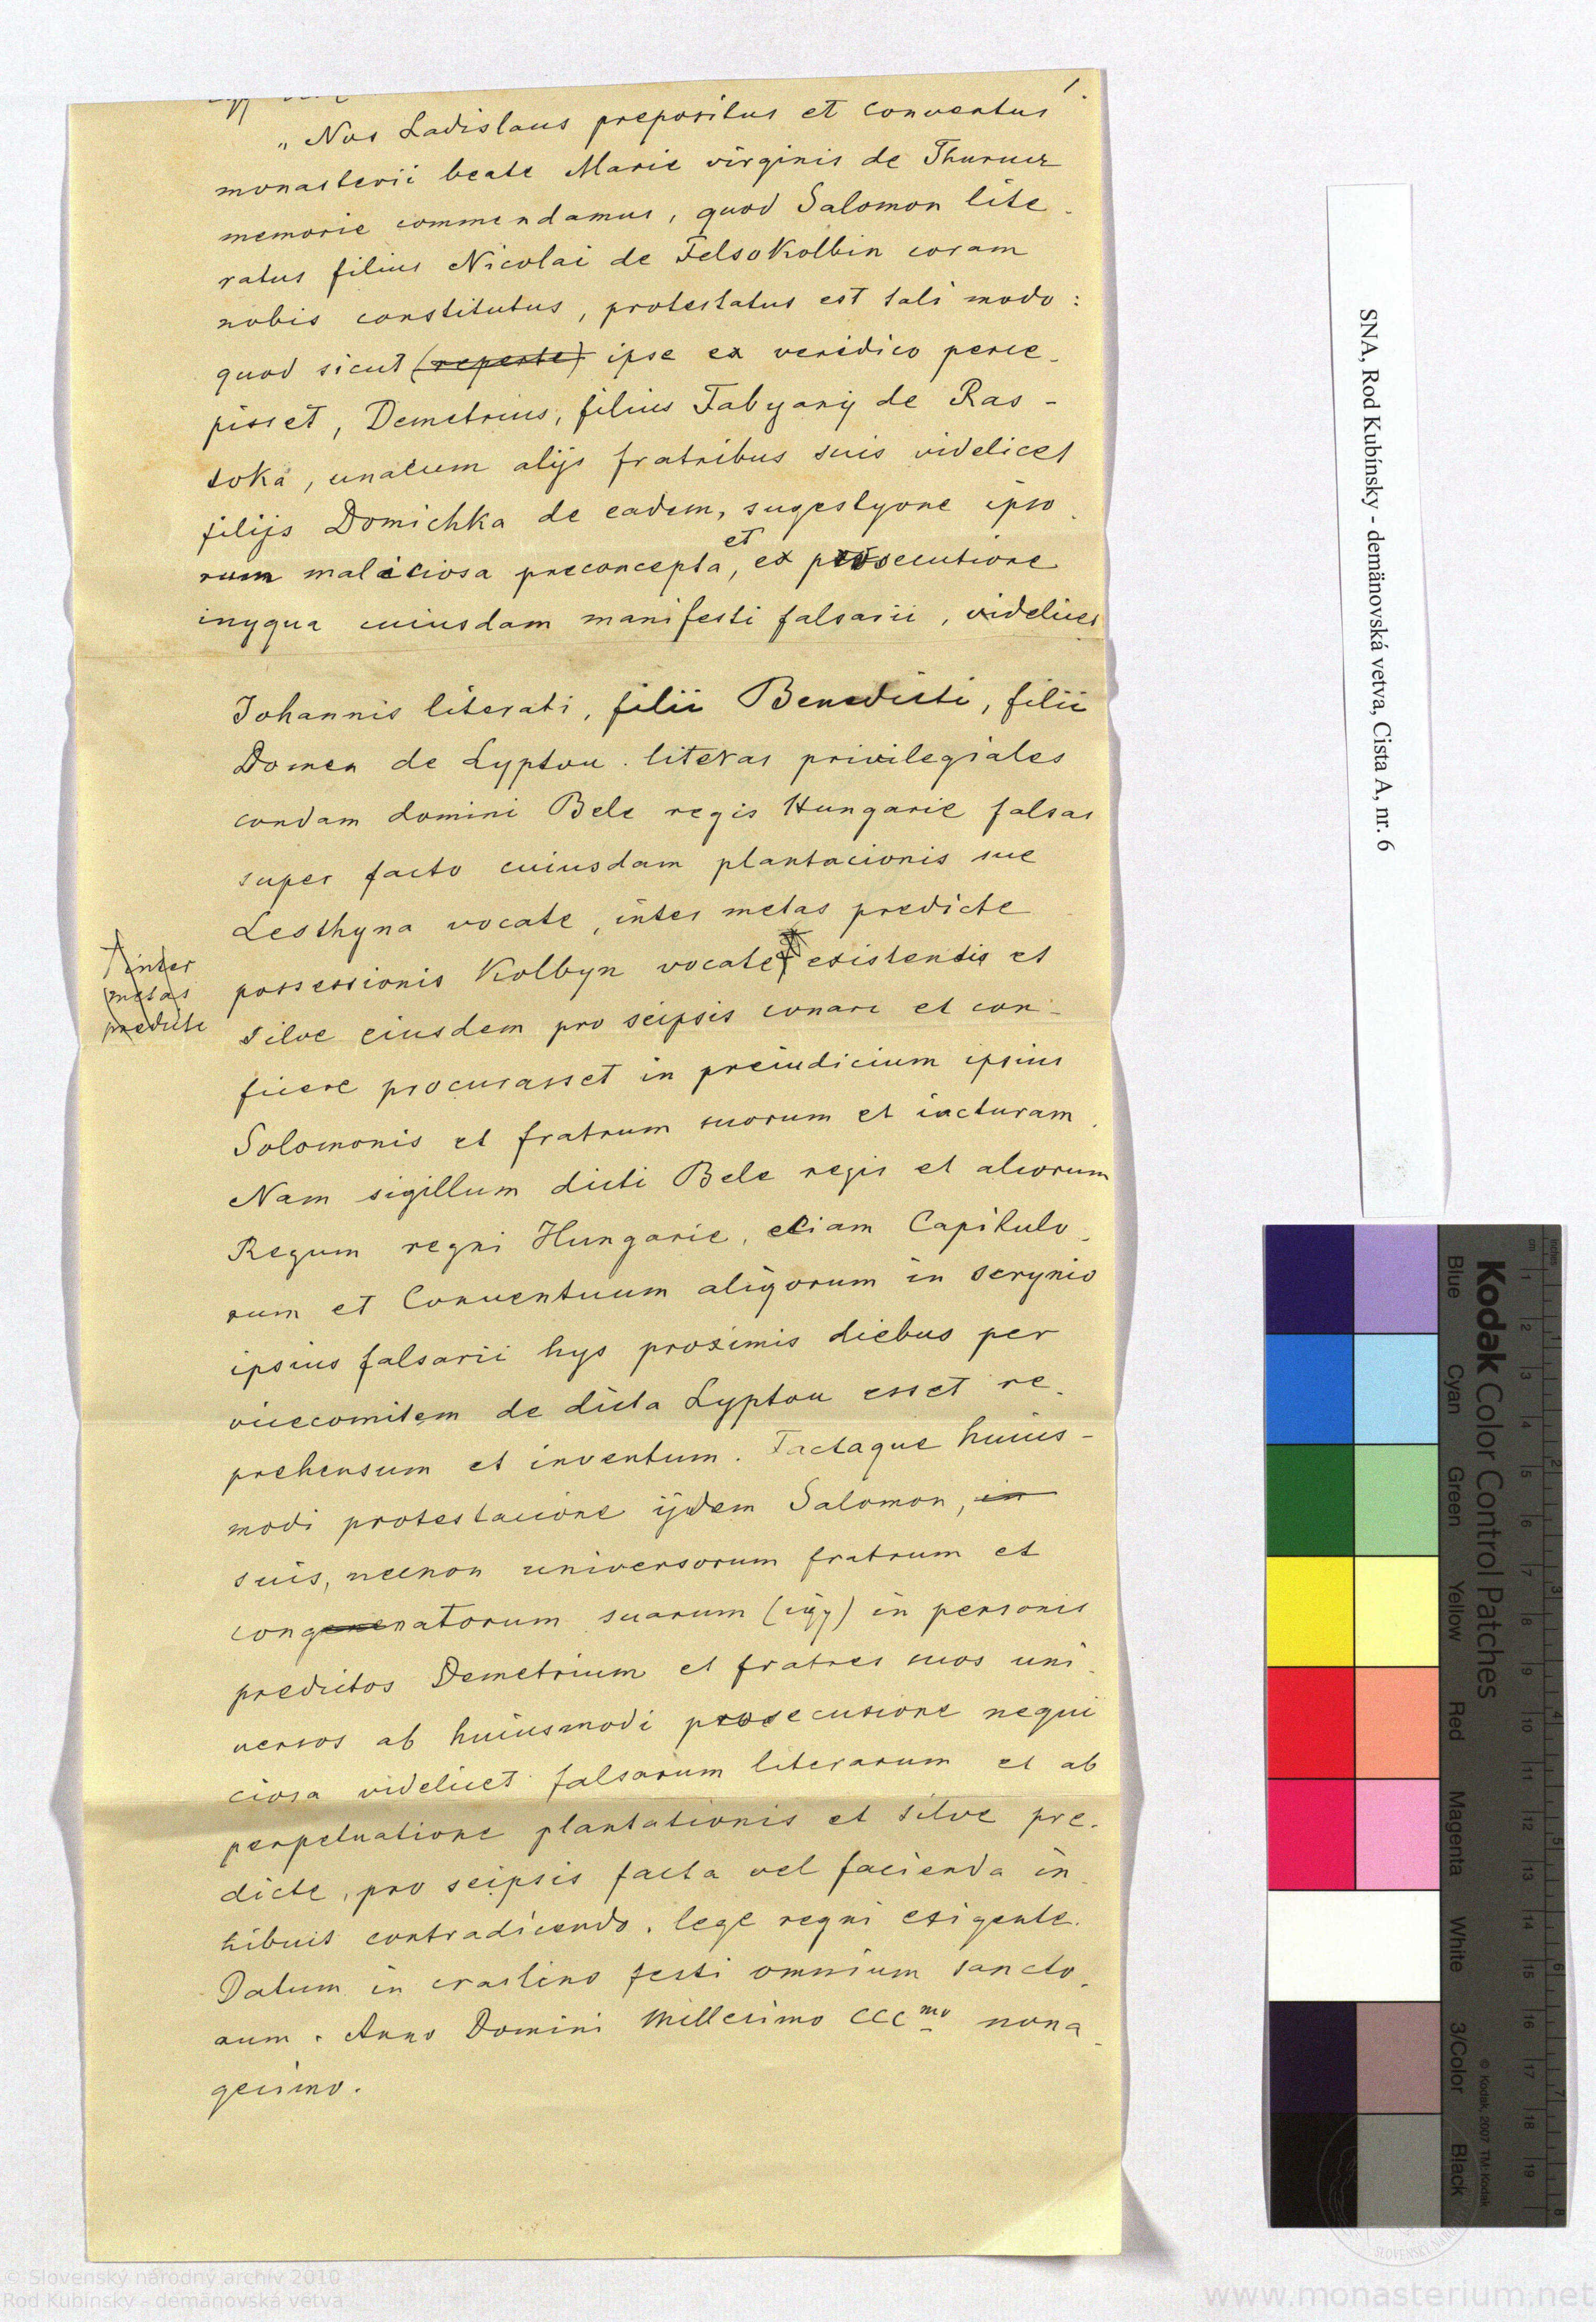 1.
„Nos Ladislaus prepositus et conventus
monasterii beate Marie virginis de Thurucz
memorie commendamus, quod Salomon lite-
ratus filius Nicolai de Felsokolbin coram
nobis constitutus, protestatus est tali modo:
quod sicut (reperte) ipse ex veridico perce-
pisset, Demetrius, filius Fabyanij de Ras-
toka, unacum alijs fratribus suis videlicet
filijs Domichka de eadem, sugestyone ipso-
rum maliciosa preconcepta, et ex prosecutione
inyqua cuiusdam manifesti falsarii, videlicet
Johannis literati, filii Benedicti, filii
Domen de Lyptou. literas privilegiales
condam domini Bele regis Hungarie falsas
super facto cuiusdam plantacionis sue
Lesthyna vocate, inter metas predicte
possessionis Kolbyn vocate existentis et
inter
metas
predicte
silve eiusdem pro seipsis conare et con-
ficere procurasset in preiudicium ipsius
Solomonis et fratrum suorum et iacturam.
Nam sigillum dicti Bele regis et aliorum
Regum regni Hungarie, eciam Capitulo-
rum et Conventuum aliqorum in scrynio
ipsius falsarii hys proximis diebus per
vicecomitem de dicta Lyptou esset re-
prehensum et inventum. Factaque huius-
modi protestacione ijdem Salomon, in
suis, necnon universorum fratrum et
congenenatorum suarum (igy) in personis
predictos Demetrium et fratres suos uni-
uersos ab huiusmodi prosecutione nequi
ciosa videlicet falsarum literarum et ab
perpetuatione plantationis et silve pre-
dicte, pro seipsis facta vel facienda in-
hibuit contradicendo, lege regni exigente.
Datum in crastino festi omnium sancto-
rum. Anno Domini Millesimo CCCmo nona-
gesimo.
SNA, Rod Kubínsky - demänovská vetva, Cista A, nr. 6
Kodak Color Control Patches
Blue
Cyan
Green
Yellow
Red
Magenta
White
3/Color
Black
© Kodak, 2007 TM: Kodak
© Slovenský národný archív 2010
Rod Kubínsky - demänovská vetva
www.monasterium.net